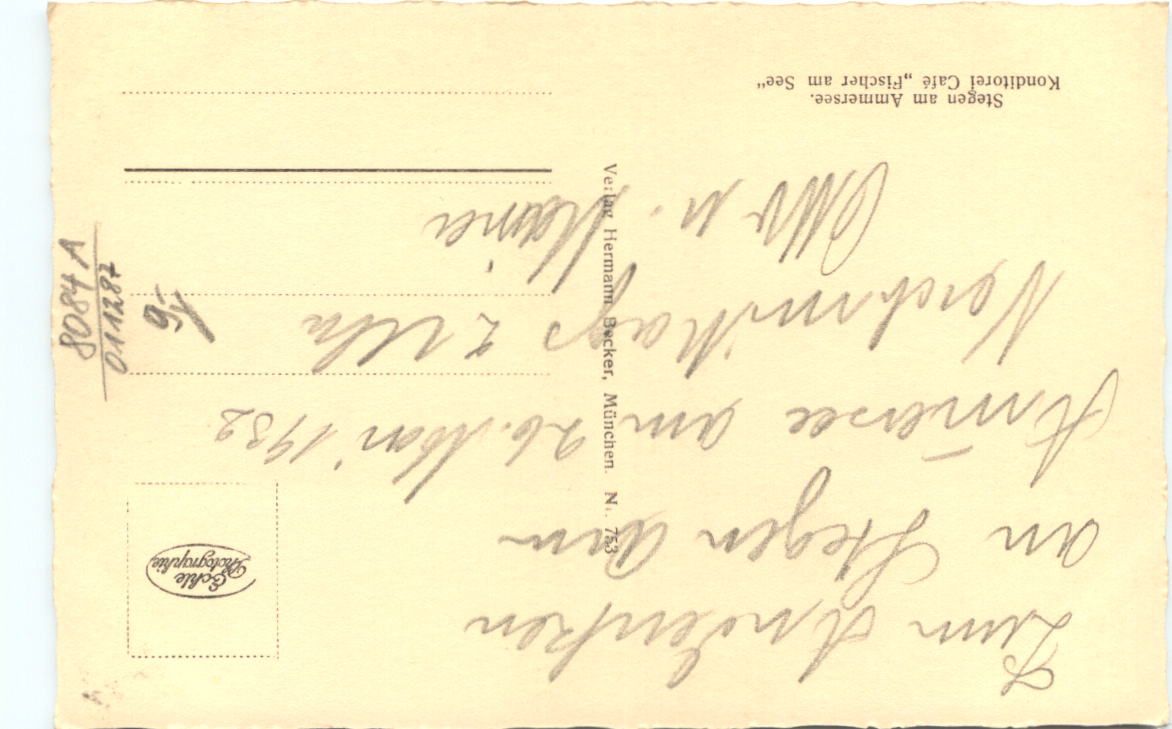 Zum Andenken
an Stegen am
Amersee am 26. Mai 1932
Nachmittags 2 Uhr
Otto u. Maria
Stegen am Ammersee.
Konditorei Café „Fischer am See“
Verlag Hermann Becker, München. Nr. 753
Echte
Photographie
80848 A
011287